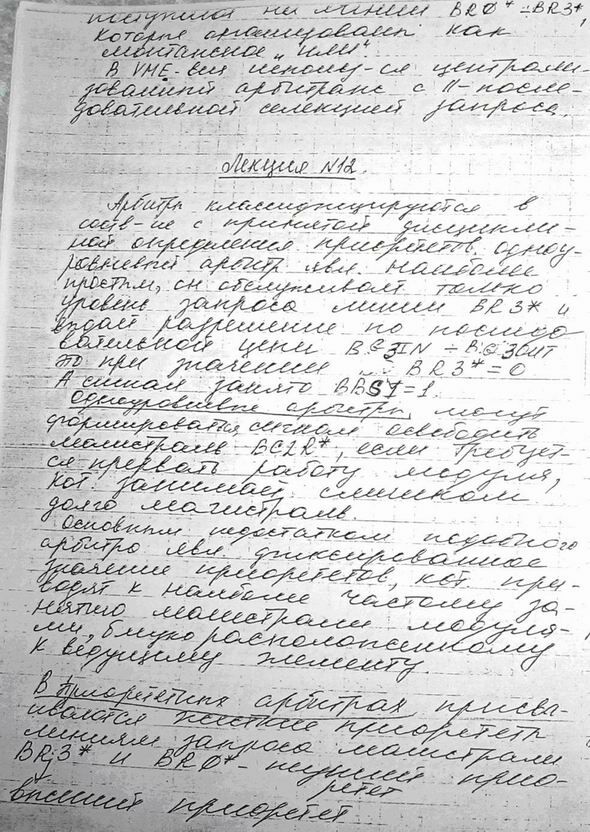 поступила на линии BRØ* ÷ BR3*,
которые организованы как
монтажное „или“
В VME-bus использ-ся централи-
зованный арбитраж с II-после-
довательной селекцией запроса.
Лекция N12.
Арбитры классифицируются в
соотв-ие с принятой дисципли-
ной определения приоритетов. одноу-
ровневый арбитр явл. наиболее
простым, он обслуживает только
уровень запроса линии BR3* и
выдаёт разрешение по последо
вательной цепи BG3IN ÷ BG3OUT
то при значении BR3* = 0
А сигнал занято BBSY=1.
Одноуровневые арбитры могут
формировать сигнал освободить
магистраль BCLR*, если требует-
ся прервать работу модуля,
кот. занимает слишком
долго магистраль.
Основным недостатком подобного
арбитра явл. фиксированное
значение приоритетов, кот. при-
водят к наиболее частому за-
нятию магистрали модуля-
ми, близко расположенному
к ведущему элементу.
В приоритетных арбитрах присва-
иваются жесткие приоритеты
линиям запроса магистрали
BR3* и BRØ* - низший прио-
ритет
высший приоритет